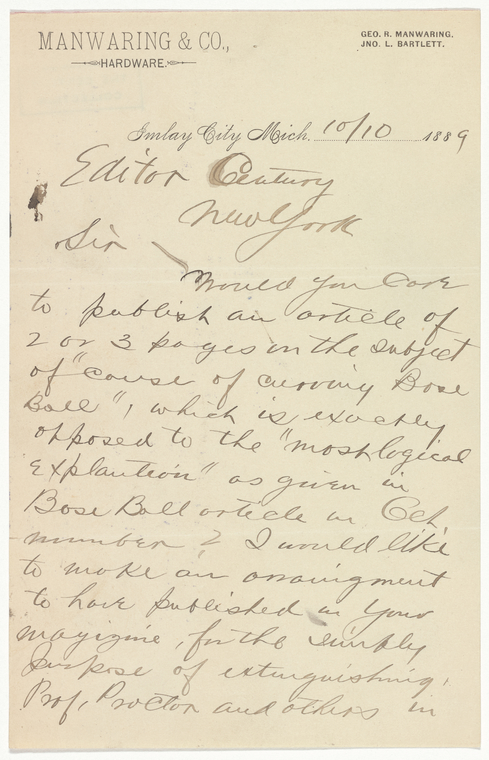 MANWARING & CO.,
HARDWARE.
GEO. R. MANWARING.
JNO. L. BARTLETT.
Imlay City Mich. 10/10 1889
Editor Century
New York
Sir
Would you care
to publish an article of
2 or 3 pages on the subject
of "cause of curving Base
Ball", which is exactly
opposed to the "most logical
explantion" as given in
Base Ball article in Oct
number? I would like
to make an arraingment
to have published in your
magizine, for the simply
purpose of extinguishing,
Prof, Proctor and others in